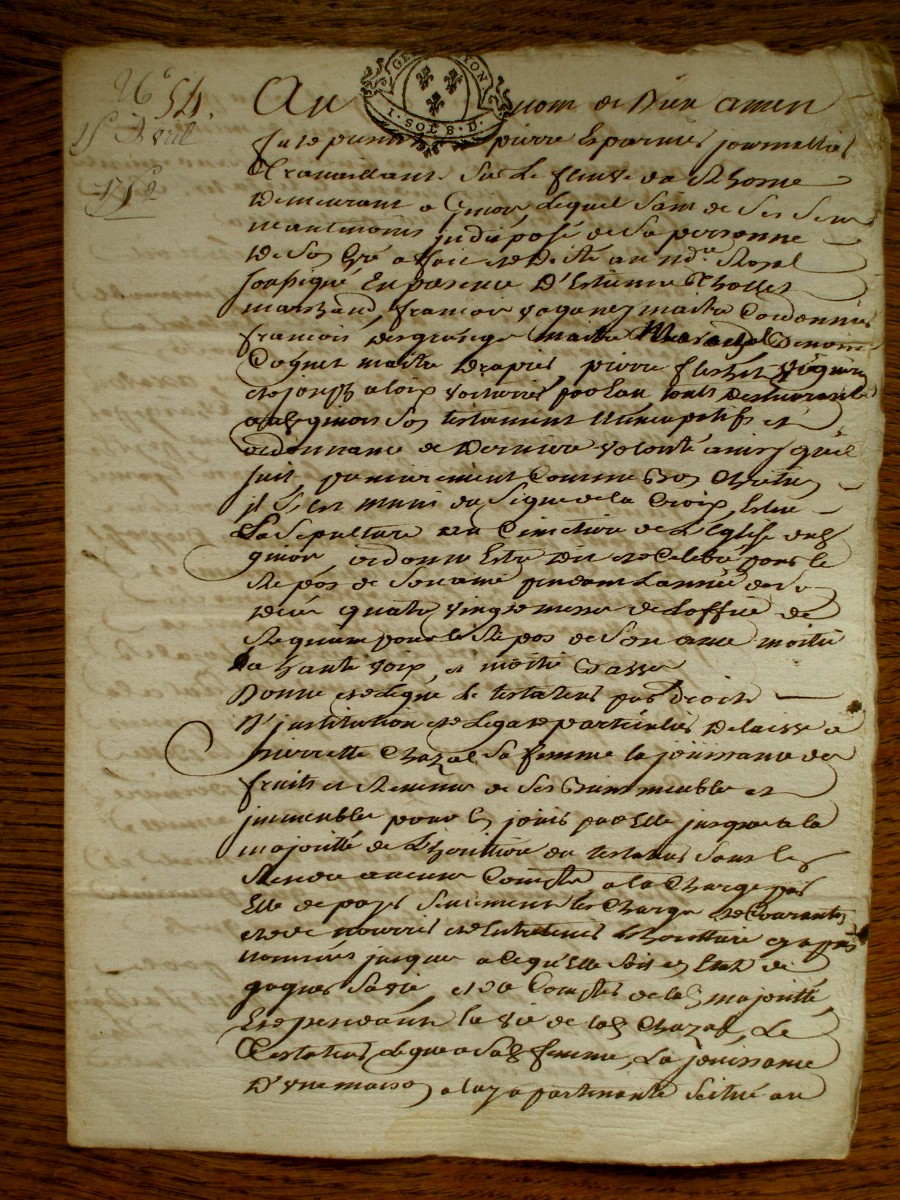 No 54.
15e Avril
GEN LYON
1 · SOL 8 · D ·
Au nom de Dieu amen
fut present pierre Eparnier journallier
travaillant sur le fleuve du Rhosne
Demeurant a Givor lequel sain de ses sens
neantmoins indisposé de sa personne
De son gré a fait et dicté au no.re Royal
soussigné En presence D'Estienne Thollet
marchand, françois vaganay maitre Cordonnier
françois maitre Marechal
Coquet maitre Drapier, pierre flechet Vigneron
et joseph aloix voiturier par eau tous demeurants
aud. givors son testament Nuncupatif et
ordonnance de Derniere volonté ainsy quil
suit, premierement Comme bon Chretien
il s'est muni du signe de la Croix, Eslue
La sepulture au Cimetiere de L'Eglise dud.
givor, ordonne Estre Dit et Celebré pour le
Repos de son ame pendant L'année de son
Deces quatre vingt messes de L'office de
Requiem pour le Repos de son ame moitié
a haute voix, et moitié basse
Donne et legue le testateur par Droit
D'institution et legat particulier Delaisse a
pierrette Chazal sa femme la jouissance des
fruits et Revenus de ses biens meubles et
immeubles pour en jouir par Elle jusques a la
majorité de L'heritiere du testateur sans en
Rendre aucun Compte, a la Charge par
Elle de payer seulement les Charges et Courantes
et de nourrir et Entretenir L'heritiere cy apres
nommée jusques a ce qu'Elle soit en Etat de
gagner sa vie, et a Compter de la d. majorité
Et pendant la vie de lad. Chazal, Le
testateur legue a sad. femme, La jouissance
D'une maison a luy apartenante scitué au